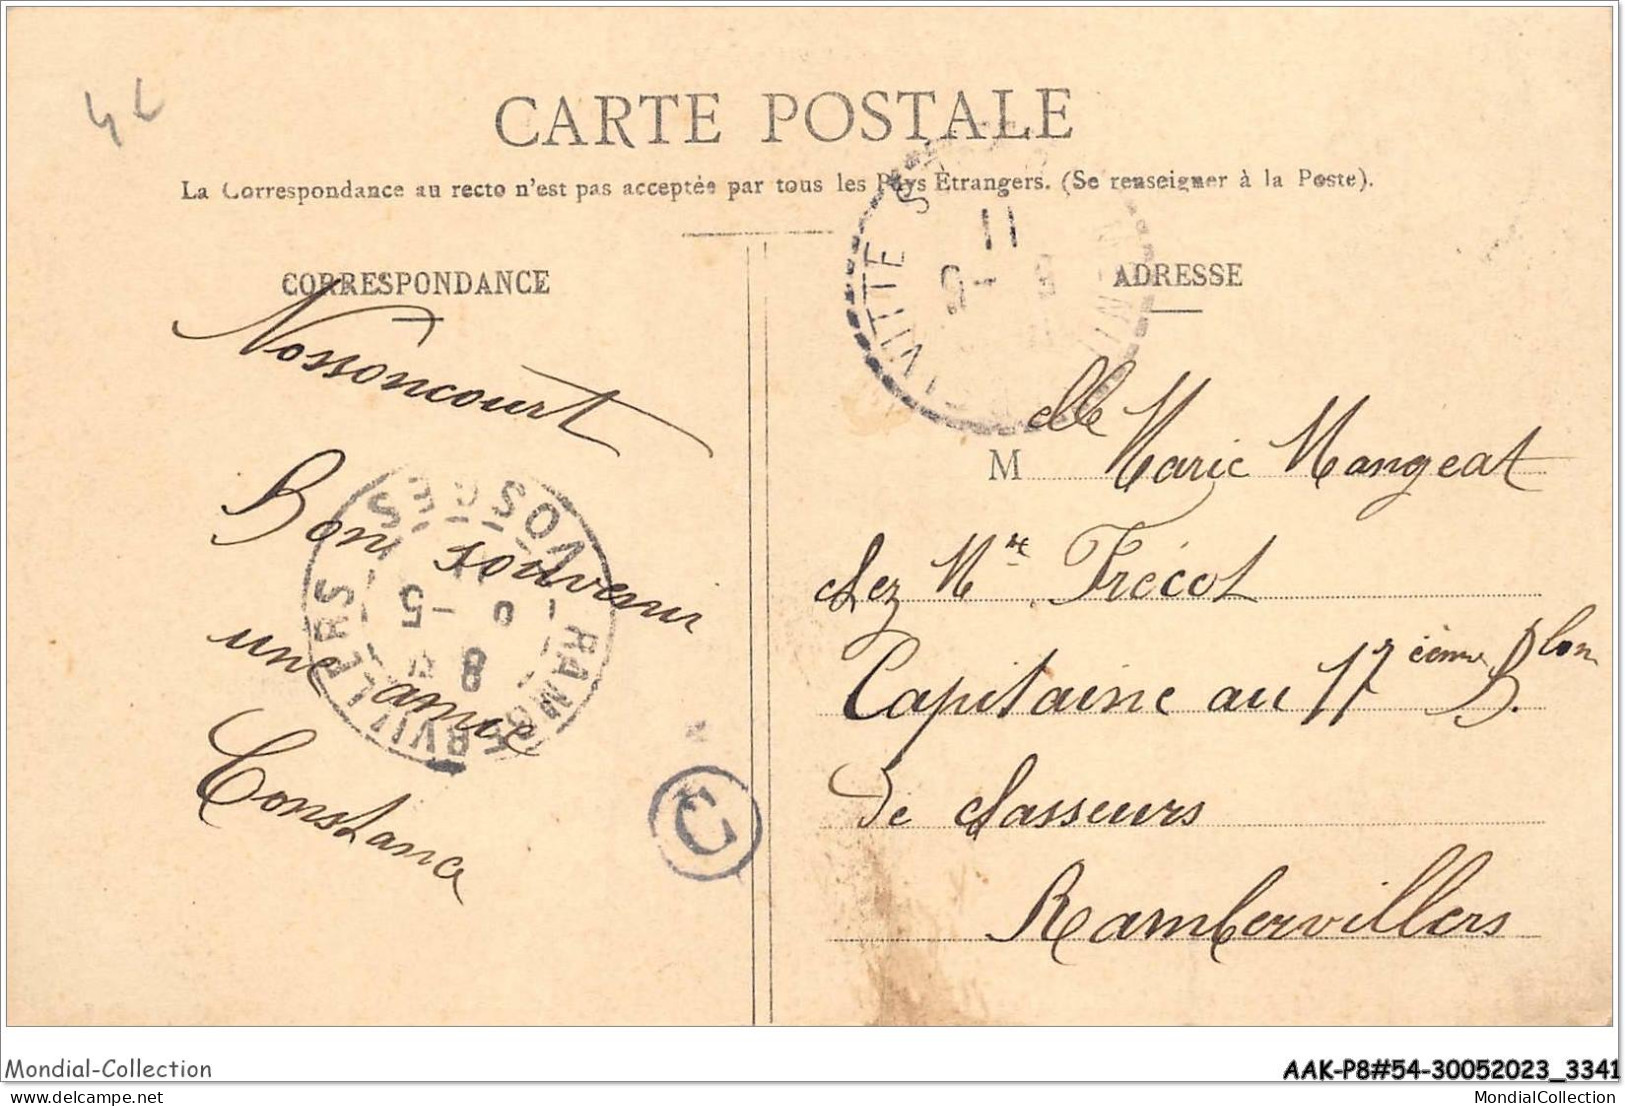 4L
CARTE POSTALE
La Correspondance au recto n'est pas acceptée par tous les Pays Étrangers. (Se renseigner à la Poste).
CORRESPONDANCE
Nossoncourt
Bon souvenir
une amie
Constance
RAMBERVILLERS
VOSGES
8
5
C
ADRESSE
11
VITTE
M elle Marie Mangeat
chez Mr Trécot
Capitaine au 17 ième B. lon
De chasseurs
Rambervillers
Mondial-Collection
AAK-P8#54-30052023_3341
delcampe.net
MondialCollection